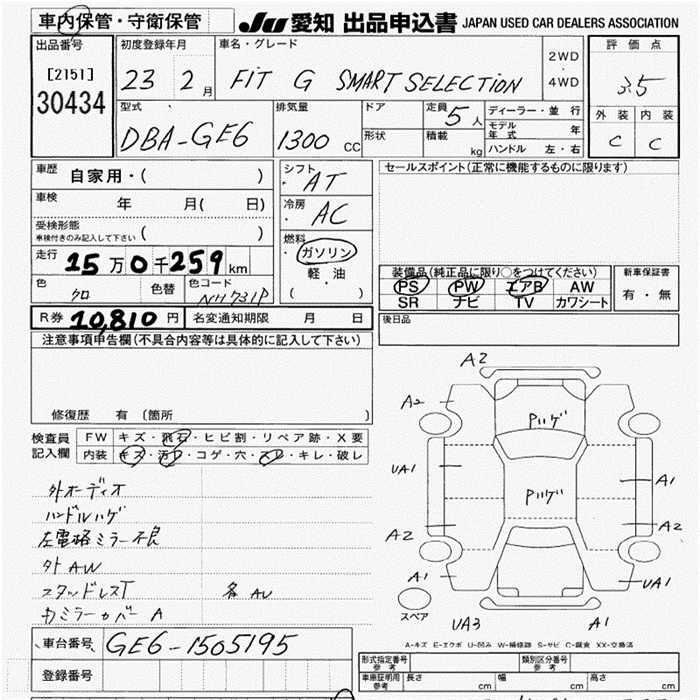 車内保管・守衛保管
JU 愛知 出品申込書 JAPAN USED CAR DEALERS ASSOCIATION
出品番号
[2151]
30434
初度登録年月
23 2 月
車名・グレード
FIT G SMART SELECTION
2WD
・
4WD
評価点
3.5
外装 内装
C C
型式
DBA-GE6
排気量
1300 CC
ドア
形状
定員 5 人
積載 kg
ディーラー・並行
モデル年式 年
ハンドル 左・右
車歴 自家用・( )
車検 年 月( 日)
受検形態
車検付きのみ記入して下さい ( )
走行 15万0千259km
色 クロ
色替
色コード NH731P
シフト AT
冷房 AC
燃料
ガソリン
軽・油
( )
セールスポイント(正常に機能するものに限ります)
装備品(純正品に限り○をつけてください)
PS PW エアB AW
SR ナビ TV カワシート
新車保証書
有・無
R券 10,810 円 名変通知期限 月 日
後日品
注意事項申告欄(不具合内容等は具体的に記入して下さい)
修復歴 有 〔箇所 〕
検査員
記入欄
FW キズ・飛石・ヒビ割・リペア跡・X要
内装 キズ・汚れ・コゲ・穴・スレ・キレ・破レ
外オーディオ
ハンドルハゲ
左電格ミラー不良
外AW
スタッドレスT
カミラーカバー A
A2
A2
Pハゲ
UA1
A1
Pハゲ
A2
A2
A1
UA1
スペア
UA3
A1
A-キズ E-エクボ U-凹み W-補修跡 S-サビ C-腐食 XX-交換済
車台番号 GE6-1505195
登録番号
形式指定番号
参考
類別区分番号
参考
車庫証明用
参考
長さ cm 幅 cm 高さ cm